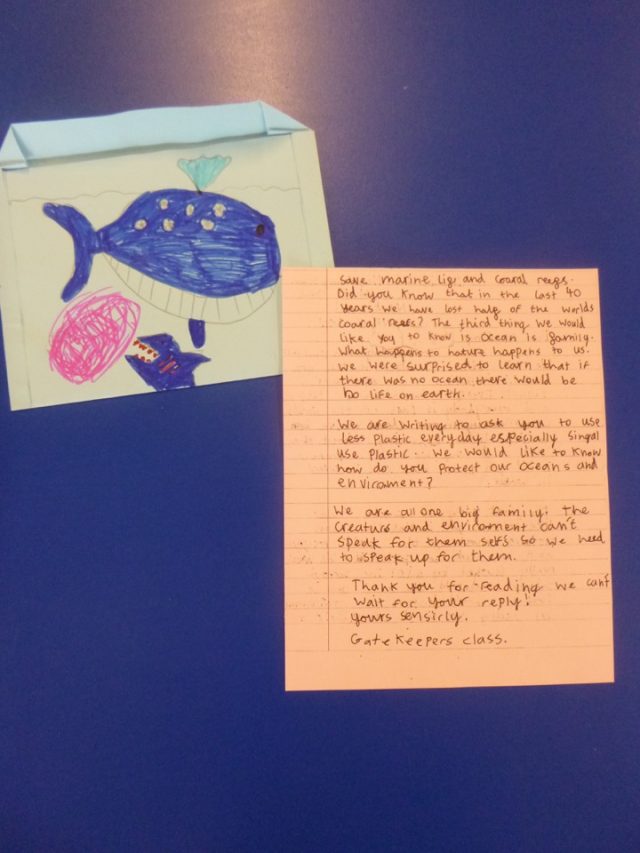 Save marine lif and Coaral reefs.
Did you know that in the last 40
years we have lost half of the worlds
coaral reefs? The third thing we would
like you to know is Ocean is family.
What happens to nature happens to us!
We were surprised to learn that if
there was no ocean there would be
no life on earth.
We are writing to ask you to use
less plastic everyday especially singal
use plastic. We would like to know
how do you protect our oceans and
enviroment?
We are all one big family! The
creature and enviroment can't
speak for them self so we need
to speak up for them.
Thank you for reading we can't
wait for your reply!
yours sensirly.
Gatekeepers class.